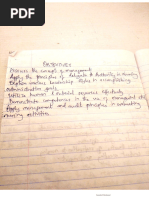 OBJECTIVES
Discuss the concept of management
Apply the principles of delegate & Authority in Nursing
Explain various leadership styles in accomplishing
administration goals
Utilize human & material resources effectively
Demonstrate competence in the use of managerial
Apply management and audit principles in evaluating
nursing activities